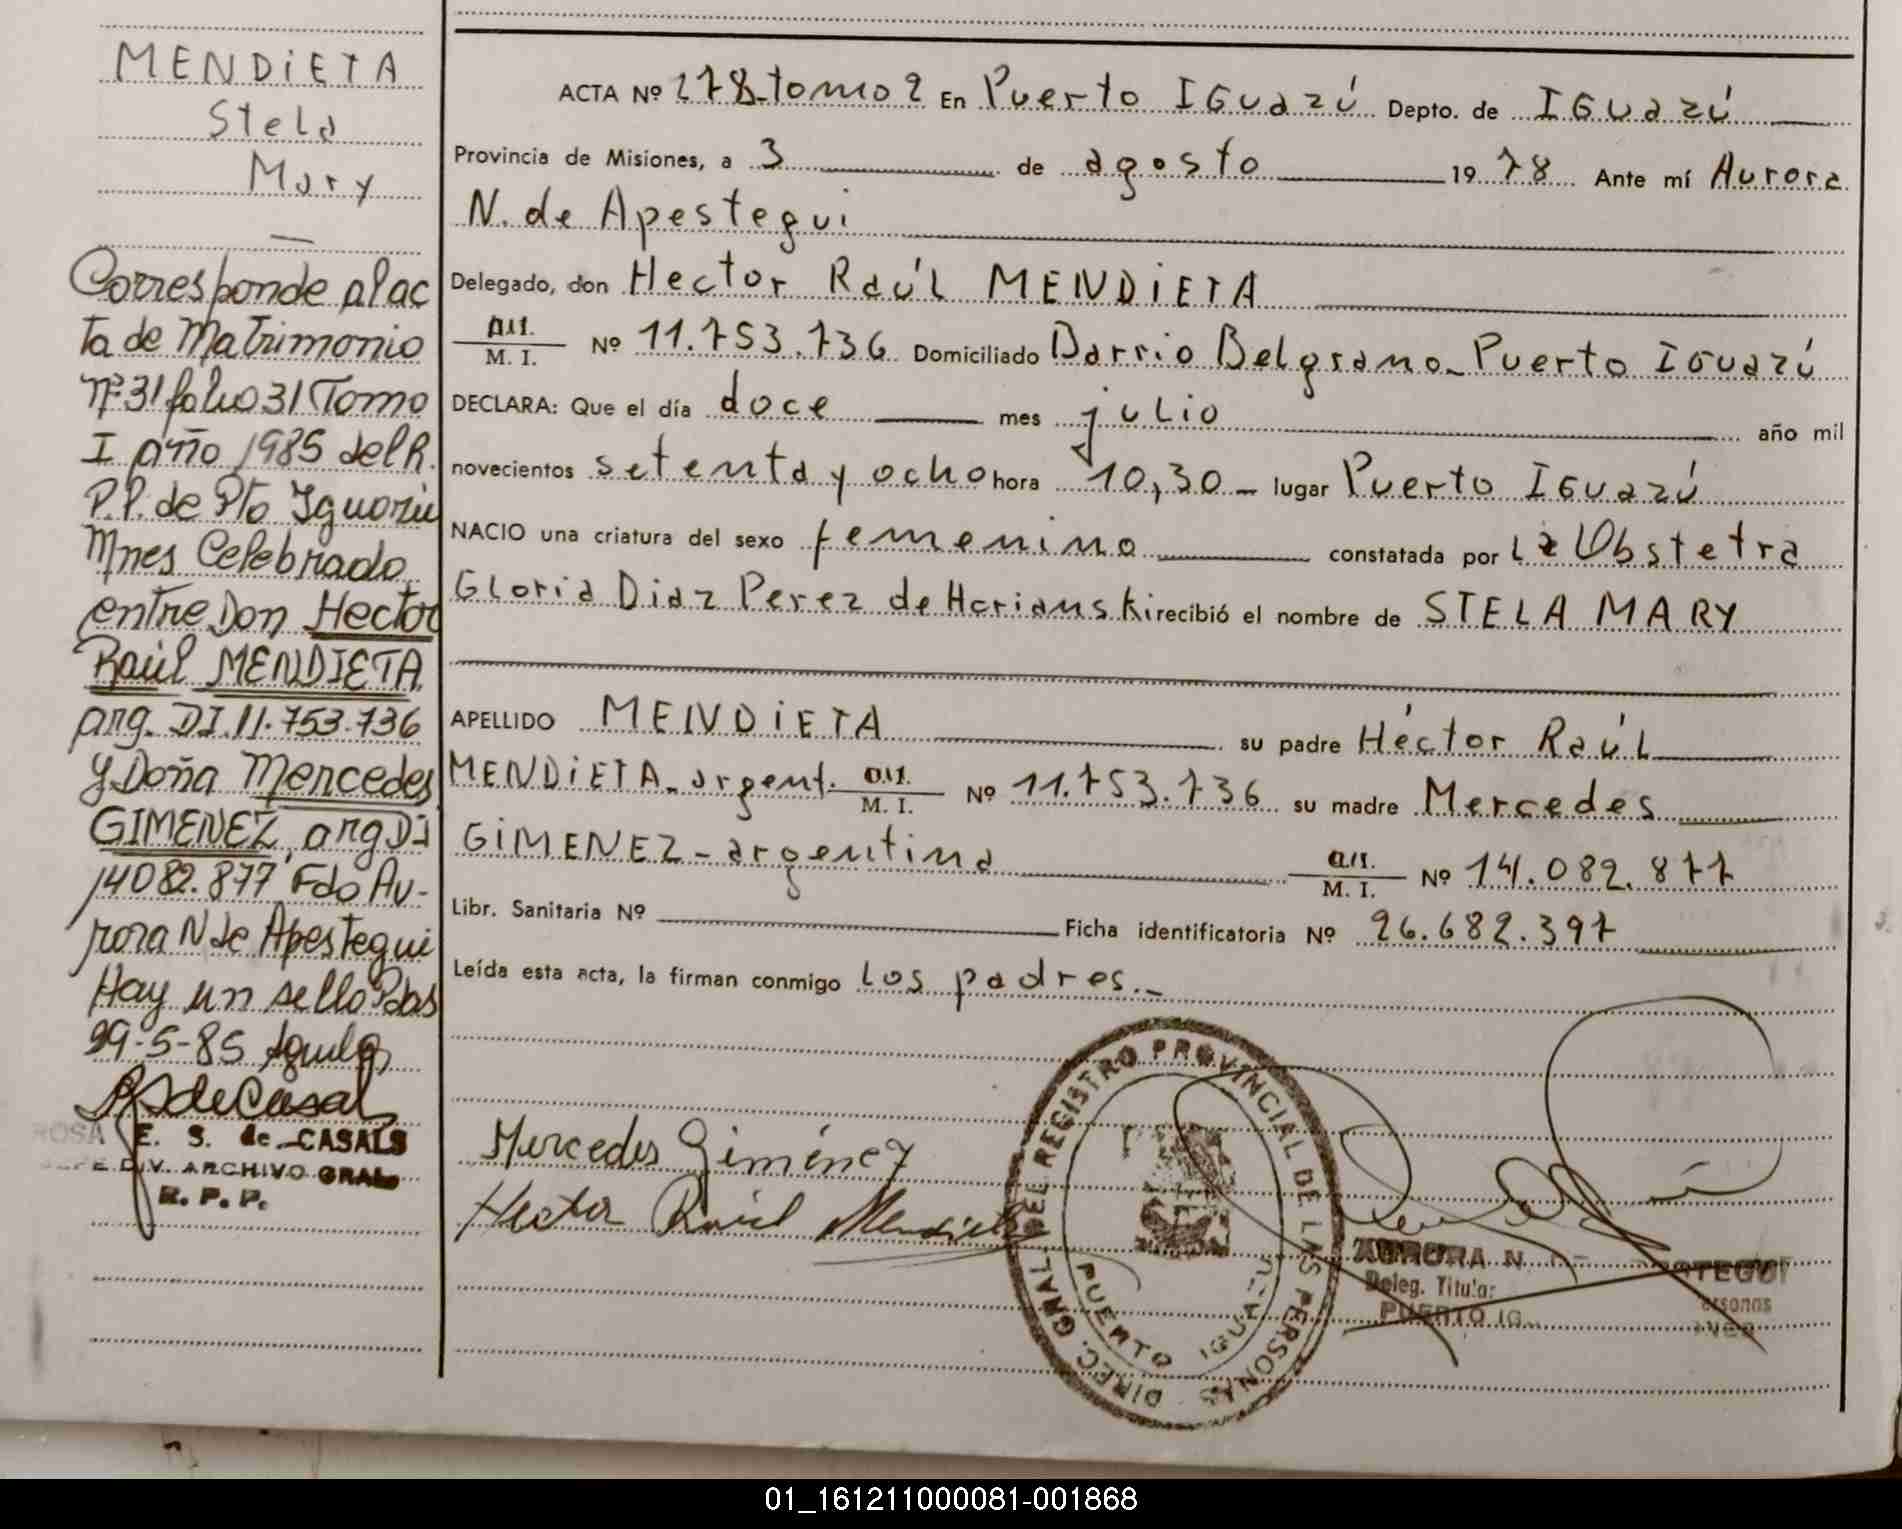 MENDiETA
Stela
Mary
—
Corresponde al ac
ta de Matrimonio
nº 31 folio 31 Tomo
I año 1985 del R.
P.P. de Pto Iguazú
Mnes Celebrado
entre Don Hector
Raúl MENDIETA
arg. DI. 11.753.736
y Doña Mercedes
GIMENEZ, arg DI
14082.877 Fdo Au-
rora N de Apestegui
Hay un sello Pdas
29-5-85
ROSA E. S. de CASALS
JEFE DIV. ARCHIVO GRAL
R. P. P.
ACTA Nº 278-tomo 2 En Puerto IGuazú Depto. de IGuazú
Provincia de Misiones, a 3 de agosto 1978 Ante mí Aurora
N. de Apestegui
Delegado, don Hector Raúl MENDiETA
M. I. Nº 11.753.736 Domiciliado Barrio Belgrano-Puerto IGuazú
DECLARA: Que el día doce mes julio año mil
novecientos setenta y ocho hora 10,30 - lugar Puerto IGuazú
NACIO una criatura del sexo femenino constatada por la Obstetra
Gloria Diaz Perez de Harianski recibió el nombre de STELA MARY
APELLIDO MENDiETA su padre Héctor Raúl
MENDiETA - argent. M. I. Nº 11.753.736 su madre Mercedes
GiMENEZ - argentina M. I. Nº 14.082.877
Libr. Sanitaria Nº Ficha identificatoria Nº 26.682.397
Leída esta acta, la firman conmigo los padres.-
Mercedes Giménez
Hector Raúl Mendieta
DIREC. GRAL. DEL REGISTRO PROVINCIAL DE LAS PERSONAS
PUERTO IGUAZU
AURORA N. DE APESTEGUI
Deleg. Titular
PUERTO IG
01_161211000081-001868